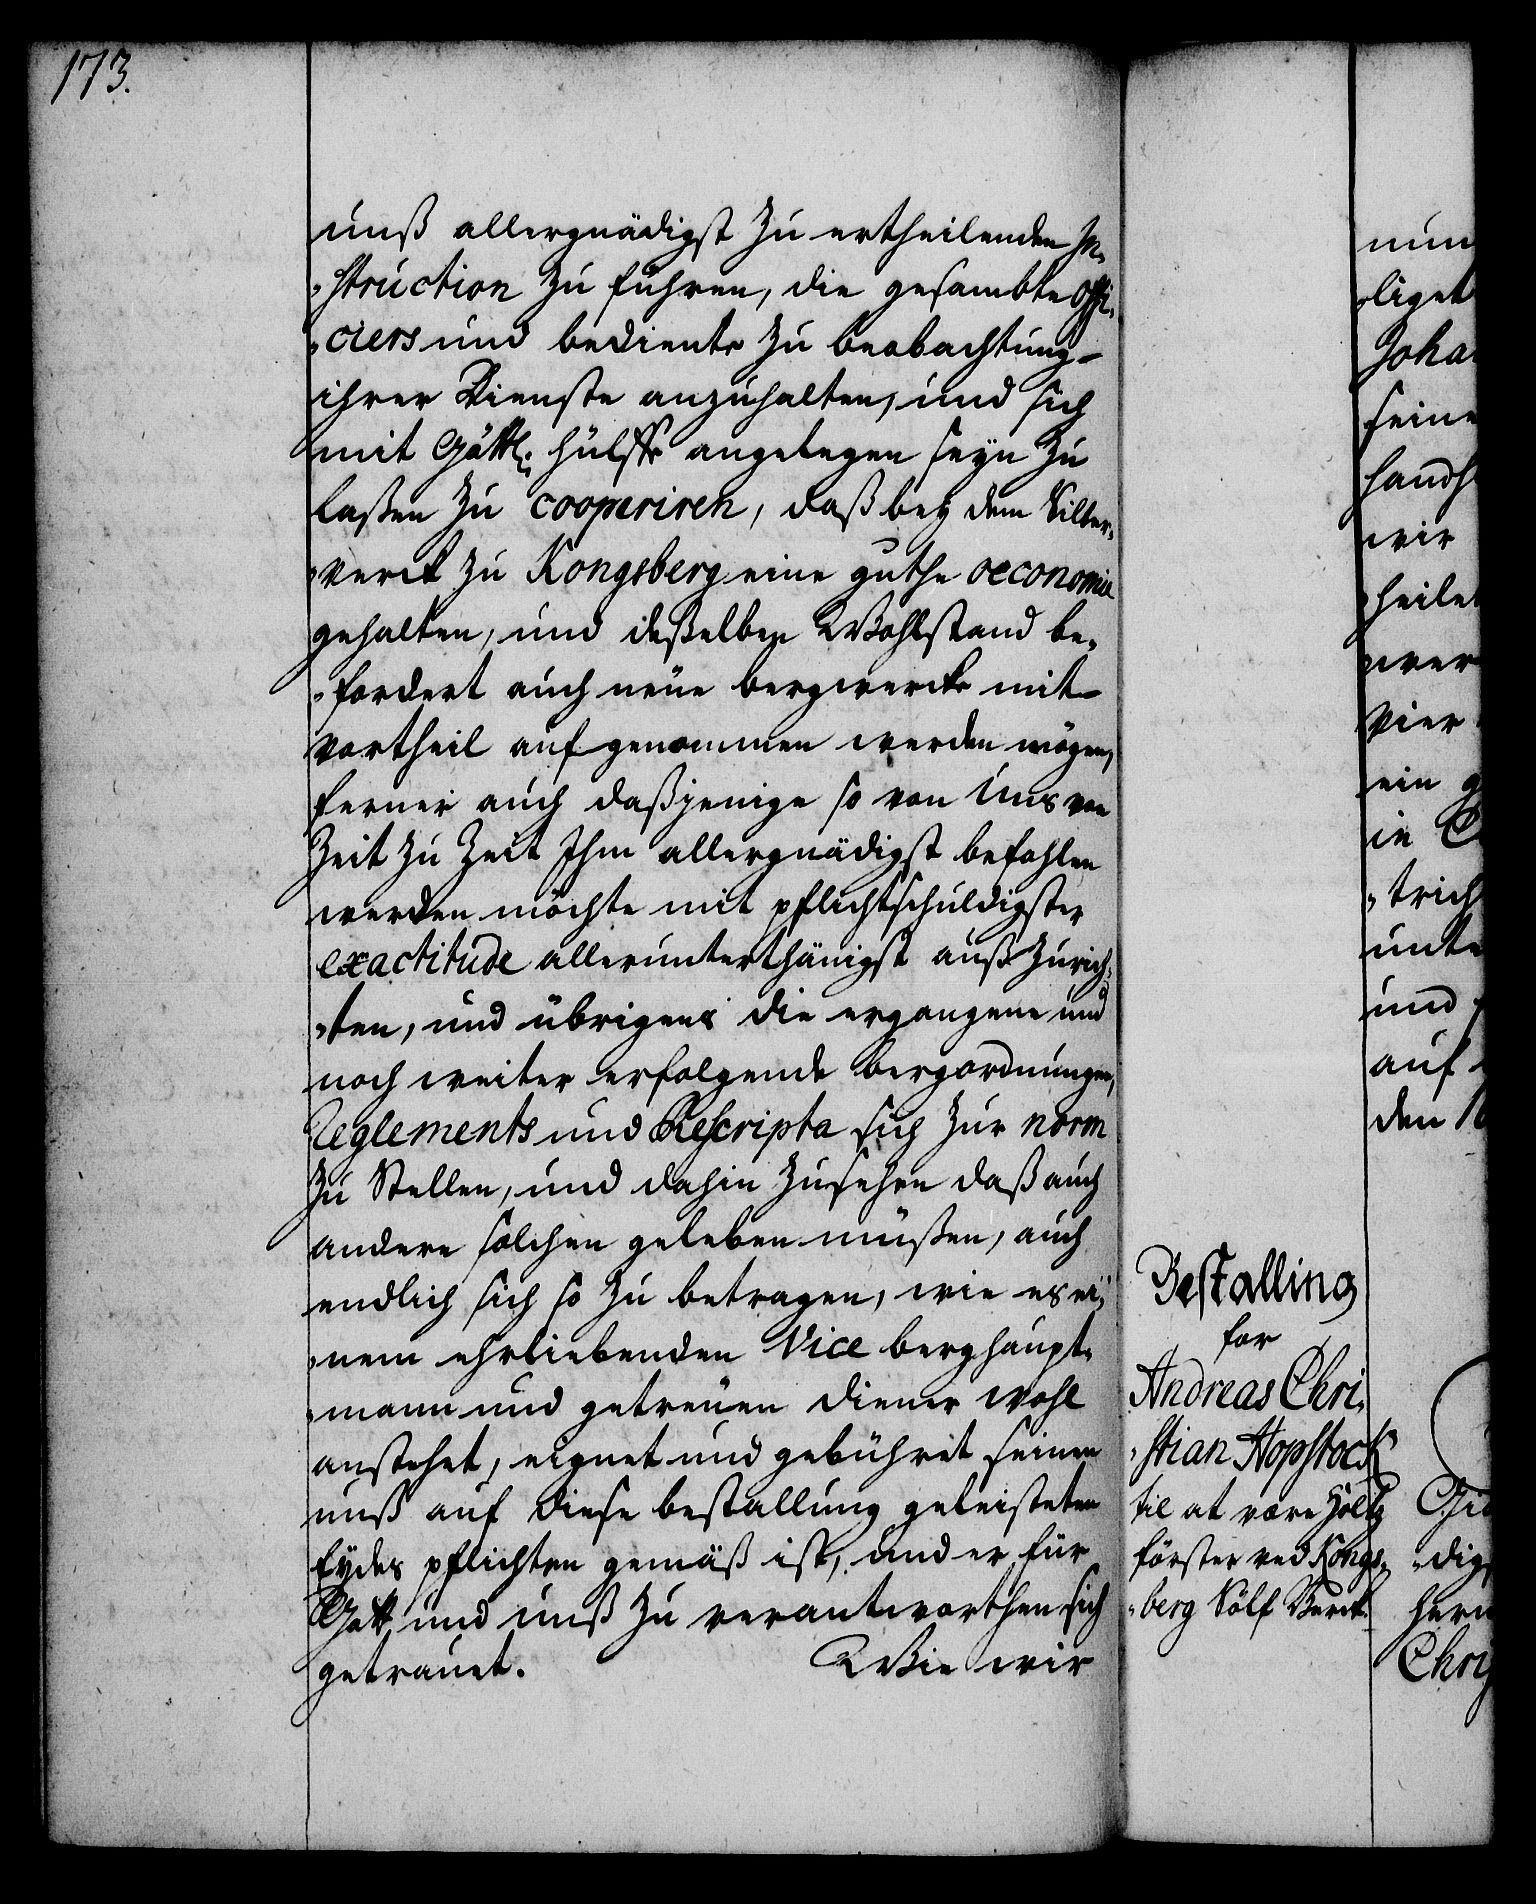 173.
unß allergnädigst zu ertheilenden In-
struction zu führen, die gesambte Offi-
ciers und bediente zu beobachtung
ihrer Dienste anzuhalten, und sich
mit Göttl: hülffe angelegen seyn zu
laßen zu cooperiren, daß bey dem Silber-
werck zu Kongsberg eine guthe oeconomie
gehalten, und deßelben Wohlstand be-
fordert auch neue bergwercke mit
vortheil aufgenommen werden mögen,
ferner auch daßjenige so von Uns von
Zeit zu Zeit Ihm allergnädigst befohlen
werden möchte mit pflichtschuldigster
exactitude allerunterthänigst auß zurich-
ten, und übrigens die ergangene und
noch weiter erfolgende bergordnungen,
Reglements und Rescripta sich zur norm
zu Stellen, und dahin zusehen daß auch
andere solchen geleben müßen, auch
endlich sich so zu betragen, wie es ei-
nem ehrliebenden Vice berghaupt-
mann und getreuen diener wohl
anstehet, eignet und gebühret seinen
unß auf diese bestallung geleisteten
Eydes pflichten gemäß ist, und er für
Gott und unß zu verantworthen sich
getrauet. Wie wir
Bestalling
for
Andreas Chri-
stian Hopstock
til at være Holtz
förster ved Kongs-
berg Sölf Værck.
nun
liget
Joha
seine
handh
wir
heile
wer
vier
ein g
in C
trich
unte
und
auf
den 1
dig
hern
Chri